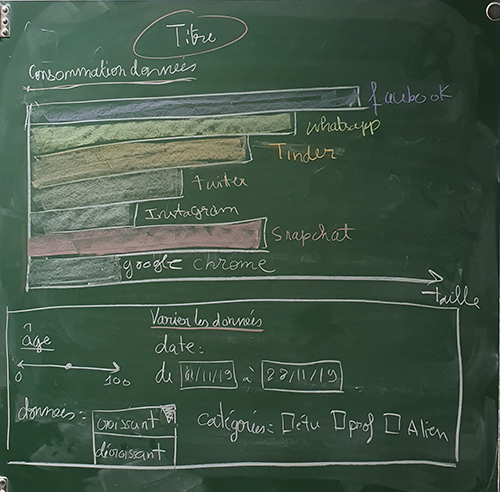 Titre
Consommation données
facebook
whatsapp
Tinder
twitter
Instagram
Snapchat
google chrome
taille
Varier les données
âge
0 100
date:
de 01/11/19 à 28/11/19
données: croissant
décroissant
catégories: étu prof Alien